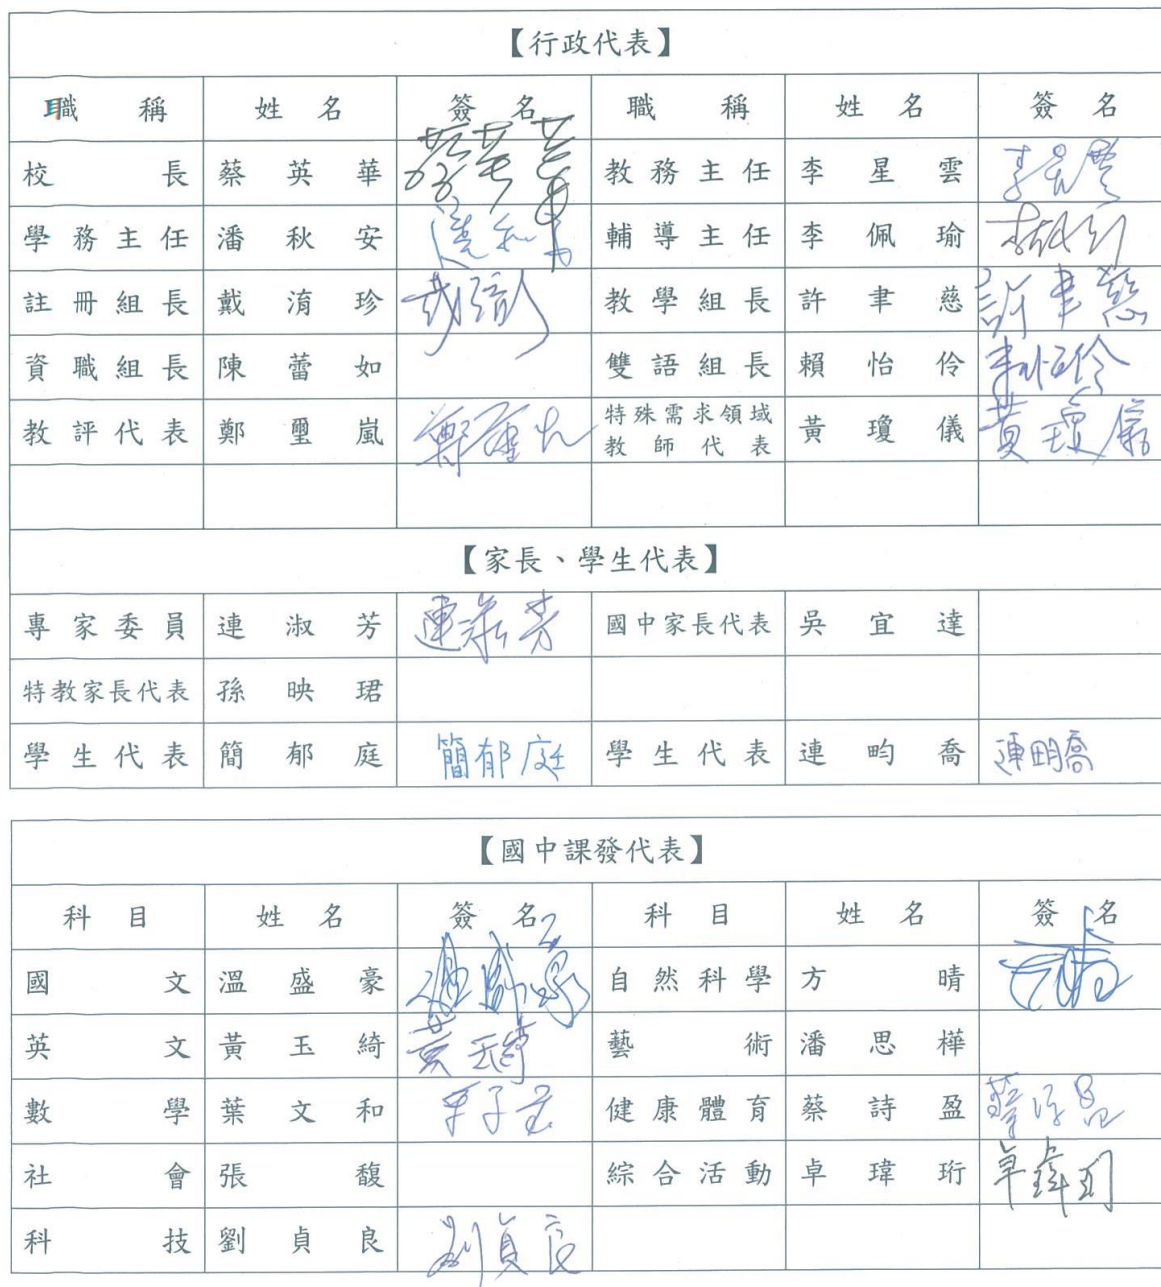 【行政代表】
職稱 姓名 簽名 職稱 姓名 簽名
校長 蔡英華 蔡英華 教務主任 李星雲 李星雲
學務主任 潘秋安 輔導主任 李佩瑜
註冊組長 戴淯珍 教學組長 許聿慈 許聿慈
資職組長 陳蕾如 雙語組長 賴怡伶 賴怡伶
教評代表 鄭璽嵐 特殊需求領域 黃瓊儀 黃瓊儀
教師代表
【家長、學生代表】
專家委員 連淑芳 連淑芳 國中家長代表 吳宜達
特教家長代表 孫映珺
學生代表 簡郁庭 簡郁庭 學生代表 連畇喬 連畇喬
【國中課發代表】
科目 姓名 簽名 科目 姓名 簽名
國文 溫盛豪 溫盛豪 自然科學 方晴
英文 黃玉綺 黃玉綺 藝術 潘思樺
數學 葉文和 健康體育 蔡詩盈 蔡詩盈
社會 張馥 綜合活動 卓瑋珩 卓瑋珩
科技 劉貞良 劉貞良